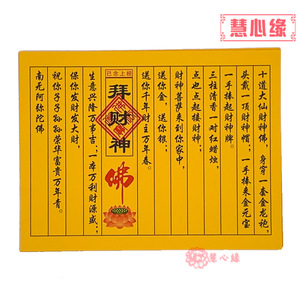 慧心缘
十道大仙财神佛,身穿一套金龙袍;
头戴一顶财神帽;一手捧来金元宝
一手捧起财神牌。
三柱清香一对红蜡烛,
点也点起接财神;
财神菩萨来到你家中,
送你金,送你银;
送你千年财主万年春。
已念上报
拜财神
佛
生意兴隆万事吉;一本万利财源盛;
保你发财发大财,
祝你子子孙孙荣华富贵万年青。
南无阿弥陀佛
慧心缘